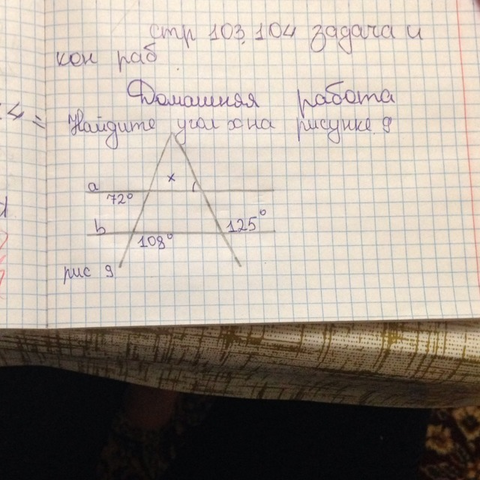 стр 103, 104 задача и
кон раб
Домашняя работа
Найдите угол x на рисунке 9
x
a
72°
b
108°
125°
рис 9